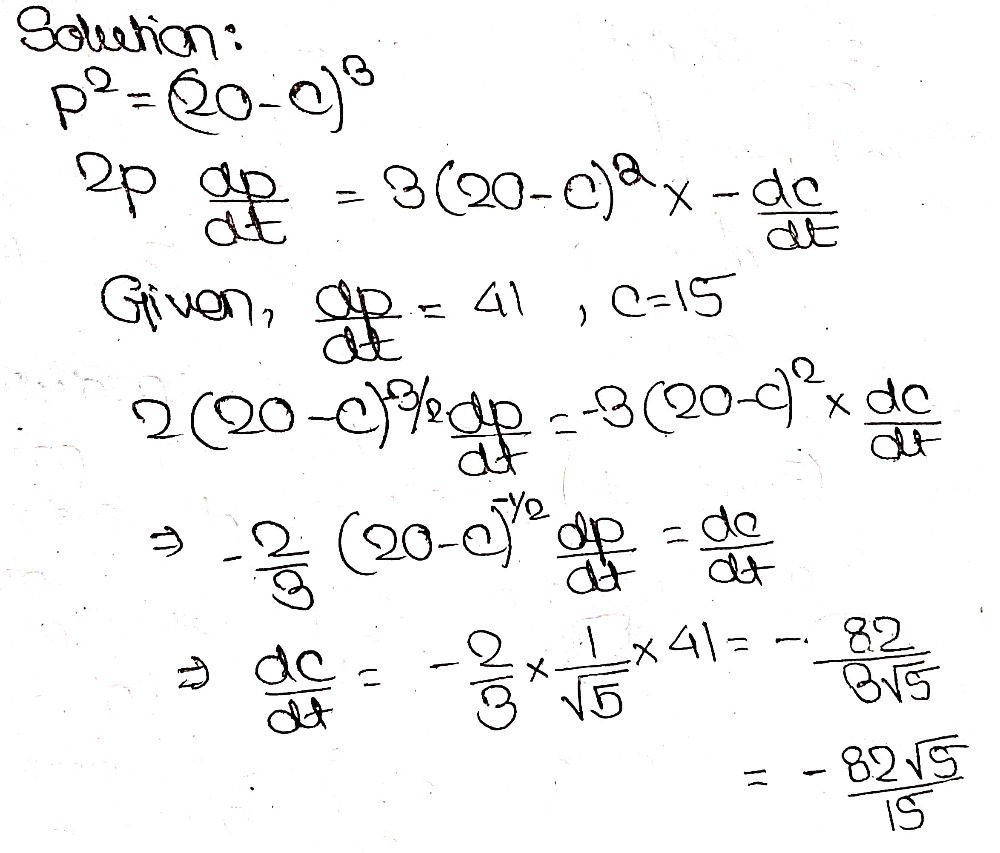 Solution:
p² = (20-c)³
2p dp/dt = 3(20-c)² x - dc/dt
Given, dp/dt = 41 , c=15
2(20-c)^3/2 dp/dt = -3(20-c)² x dc/dt
⇒ -2/3 (20-c)^-1/2 dp/dt = dc/dt
⇒ dc/dt = -2/3 x 1/√5 x 41 = - 82/3√5
= - 82√5/15